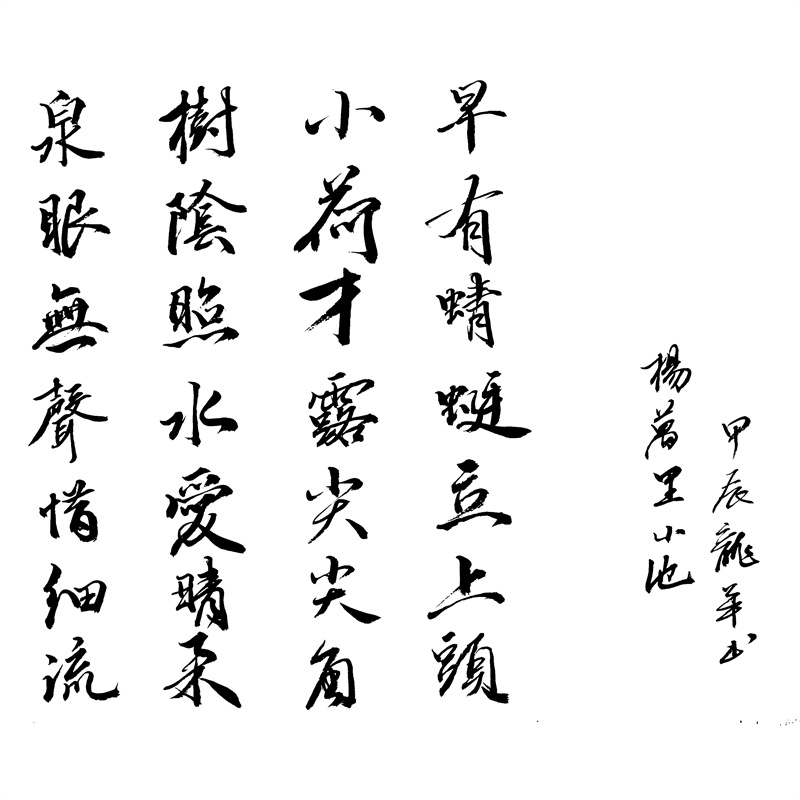 泉眼無聲惜細流
樹陰照水愛晴柔
小荷才露尖尖角
早有蜻蜓立上頭
楊萬里小池
甲辰龍年书